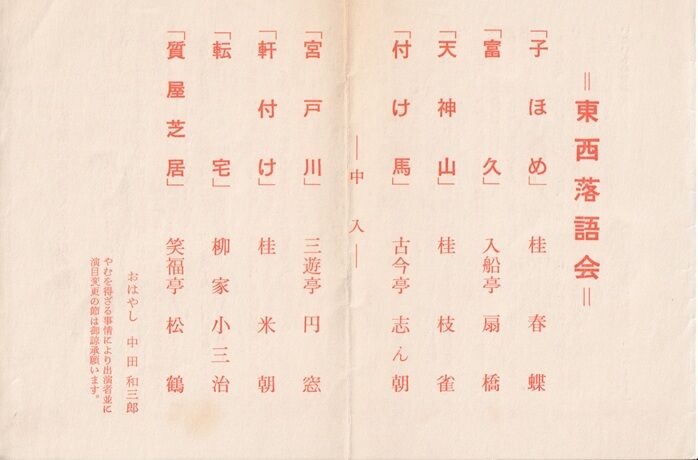 ＝東西落語会＝
「子ほめ」 桂春蝶
「富久」 入船亭扇橋
「天神山」 桂枝雀
「付け馬」 古今亭志ん朝
―中入―
「宮戸川」 三遊亭円窓
「軒付け」 桂米朝
「転宅」 柳家小三治
「質屋芝居」 笑福亭松鶴
おはやし 中田和三郎
やむを得ざる事情により出演者並に
演目変更の節は御諒承願います。